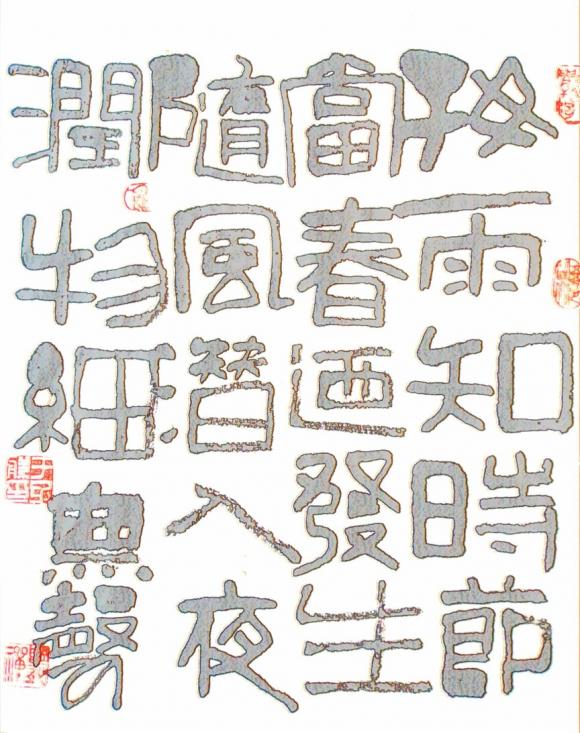 好雨知時節
當春迺發生
隨風潛入夜
潤物細無聲